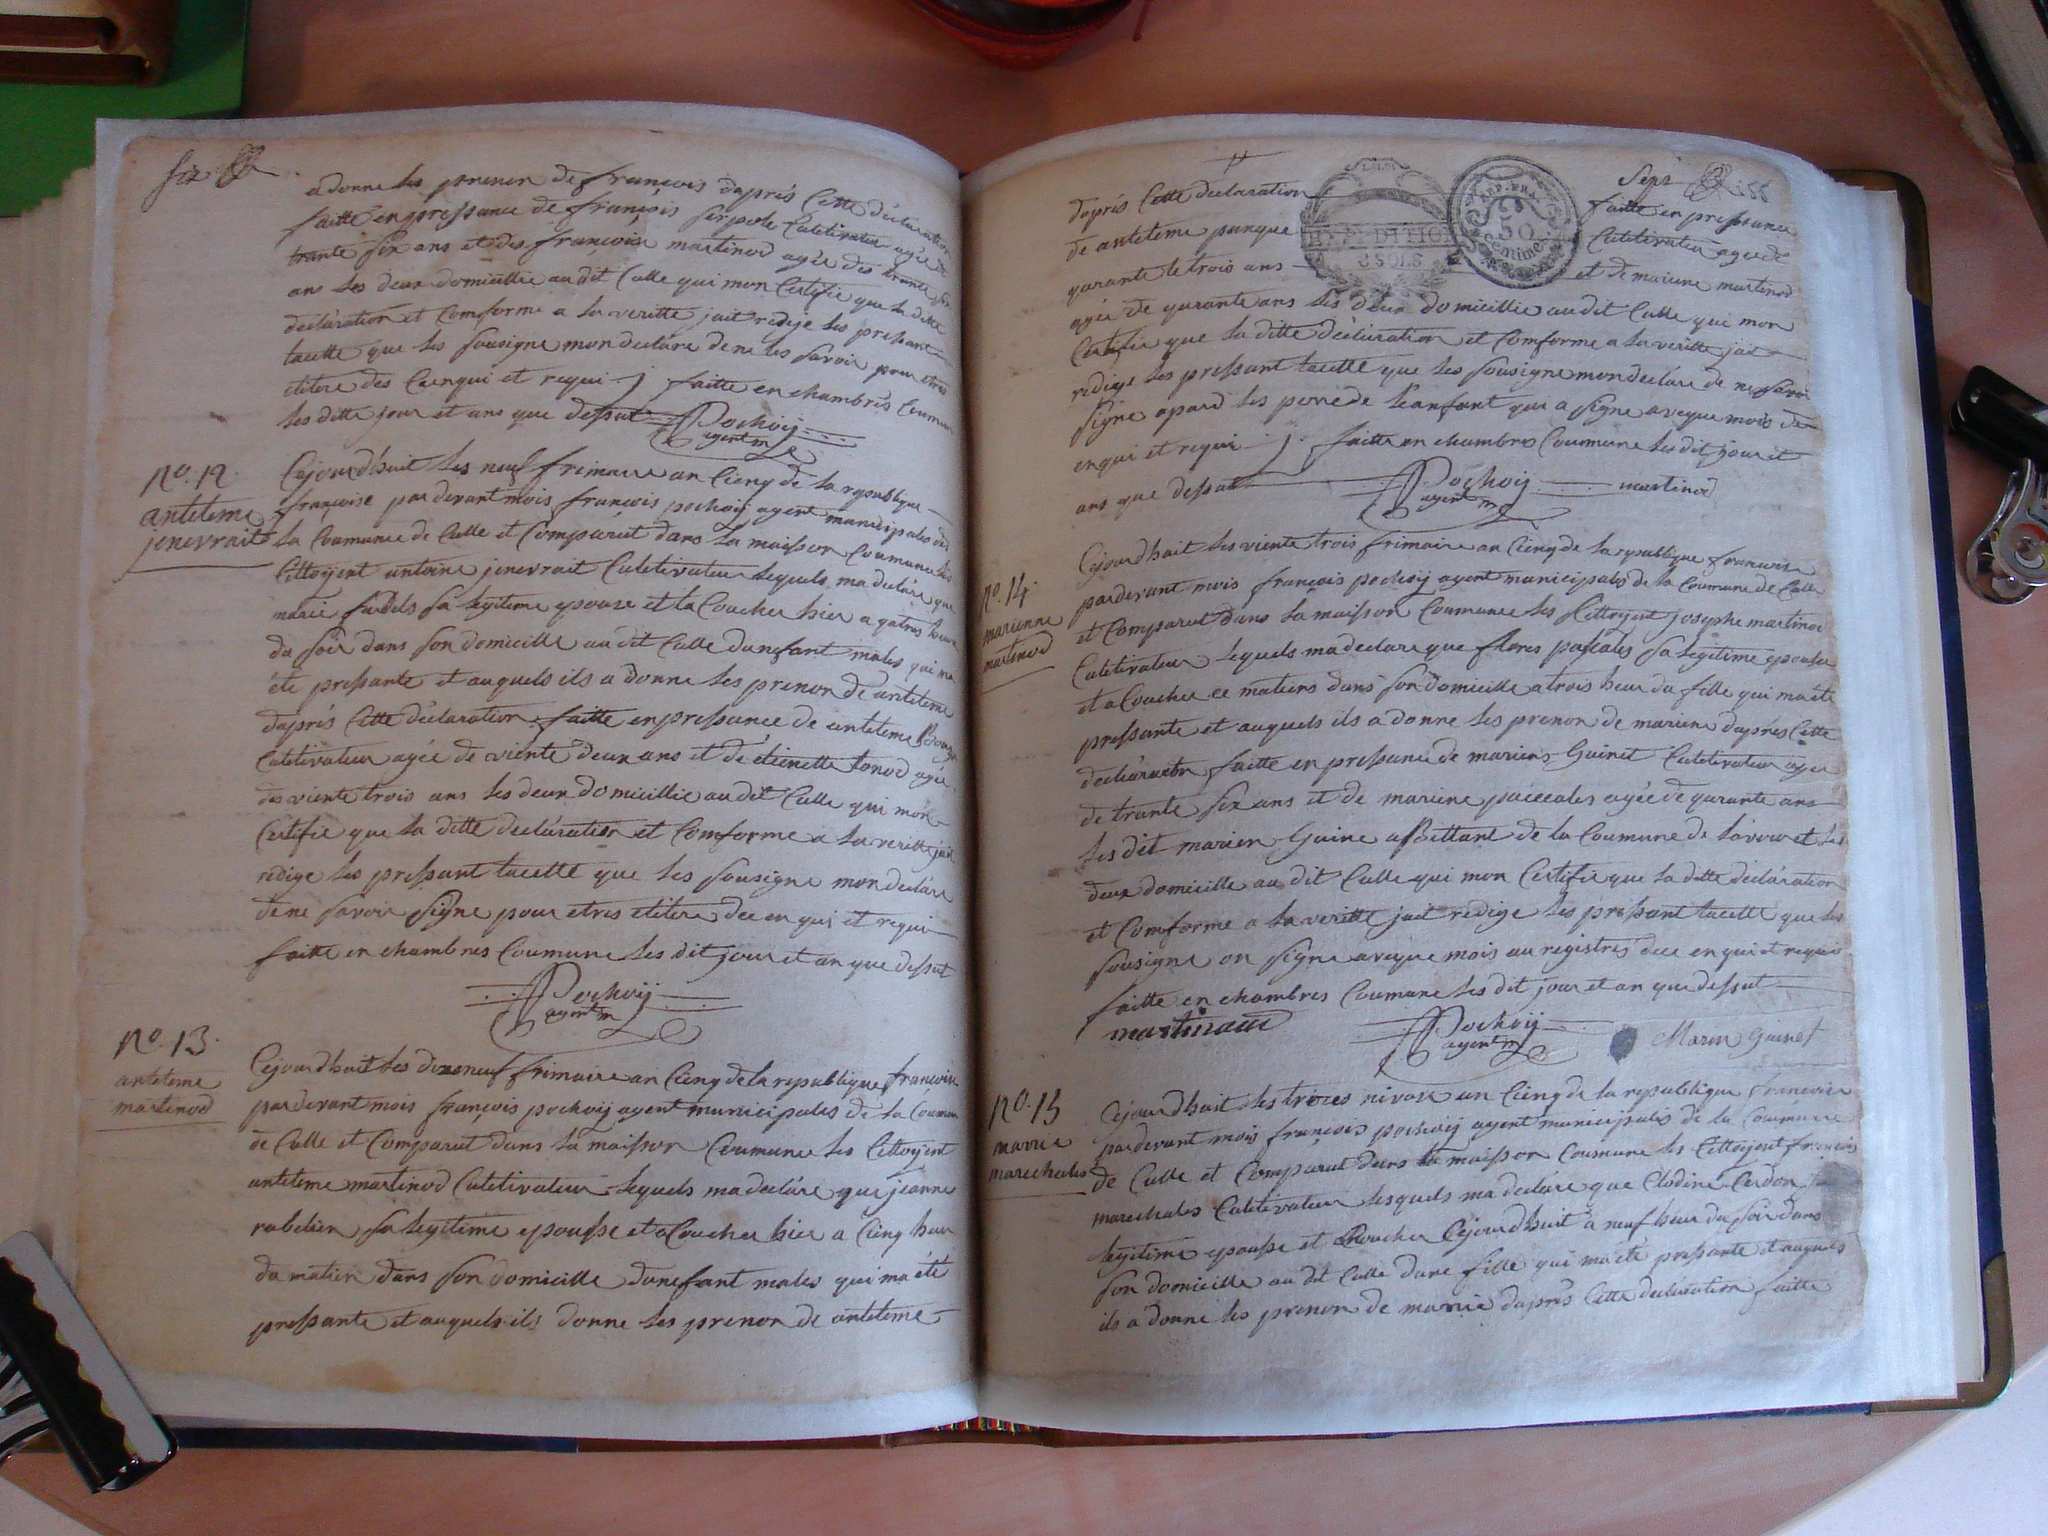 six
a donne les prenon de françois daprés Cette déclaration
faitte en pressance de françois serpole Cultivateur agée de
trante six ans et des françoise martinod agée des trante six
ans les deux domicillie au dit Culle qui mon Certifie que la ditte
declaration et Comforme a la veritte jait redije les pressant
lacette que les sousigne mon declare de ne les savoir pour etres
etitere des Caenqui et requi faitte en chambres Coumune
les ditte jour et ans que dessut Pochoij
agent m
No. 12
anteleme
jenevrait
Cejourdhuit les neuf frimaire an Cienq de la republique
françoise pardevant mois françois pochoij agent municipales de
la Coumune de Culle et Comparut dans la maisson Coumune les
Cittoyent antoine jenevrait Cultivateur lequels ma declare que
marie fardels sa legitime epouse et la Coucher hier a qatres heure
du soir dans son domicille au dit Culle dunefant males qui ma
éte pressante et auquels ils a donne les prenon de anteleme
daprés Cette déclaration faitte en pressance de anteleme
Cultivateur agée de viente deux ans et de étienette tonod agée
des viente trois ans les deux domicillie au dit Culle qui mon
Certifie que la ditte declaration et Comforme a la veritte jait
redige les pressant lacette que les sousigne mon declare
de ne savoir signe pour etres etitere dee en qui et requi
faitte en chambres Coumune les dit jour et an que dessut
Pochoij
agent m
No. 13
anteleme
martinod
Cejourdhuit les dixneuf frimaire an Cienq de la republique françoise
pardevant mois françois pochoij agent municipales de la Coumune
de Culle et Comparut dans la maisson Coumune les Cittoyent
anteleme martinod Cultivateur lequels ma declare que jeanne
rabelien sa legitime epousse et a Coucher hier a Cienq heur
du matien dans son domicille dunefant males qui ma été
pressante et auquels ils donne les prenon de anteleme
Sept 155
daprés Cette declaration faitte en pressance
de anteleme punque Cultivateur agée de
qarante le trois ans et de mariene martinod
agée de qarante ans les deux domicillie au dit Culle qui mon
Certifie que la ditte déclaration et Comforme a la veritte jait
redige les pressant lacette que les sousigne mon declare de ne savoir
signe apard les pere de leanfant qui a signe aveque mois de
enqui et requi faitte en chambres Coumune les dit jour et
ans que dessut Pochoij martinod
agent m
EXPEDITION
3 SOLS
REP. FRA.
50
Centimes
No. 14
marienne
martinod
Cejourdhuit les viente trois frimaire an Cienq de la republique francoise
pardevant mois françois pochoij agent municipales de la Coumune de Culle
et Comparut dans la maisson Coumune les Cittoyent josephe martinod
Cultivateur lequels ma declare que flores pascales sa legitime epouse
et a Coucher ce matiens dans son domicille a trois heur du fille qui ma éte
pressante et auquels ils a donne les prenon de mariene daprés Cette
declaration faitte en pressance de mariens Guinet Cultivateur agée
de trante six ans et de mariene paiceales agée de qarante ans
les dit marien Guine abittant de la Coumune de lavour et les
deux domicille au dit Culle qui mon Certifie que la ditte declaration
et Comforme a la veritte jait redige les pressant lacette que les
sousigne on signe aveque mois au registres dee en qui et requi
faitte en chambres Coumune les dit jour et an que dessut
martinaud Pochoij Marin Guinet
agent m
No. 15
marie
marechales
Cejourdhuit les troices nivose an Cienq de la republique francoise
pardevant mois françois pochoij agent municipales de la Coumune
de Culle et Comparut dans la maisson Coumune les Cittoyent francois
marechales Cultivateur lesquels ma declare que Clodine Cerdon sa
legitime epousse et a Coucher Cejourdhuit a neuf heur du soir dans
son domicille au dit Culle dune fille qui ma été pressante et auquels
ils a donne les prenon de marie daprés Cette declaration faitte